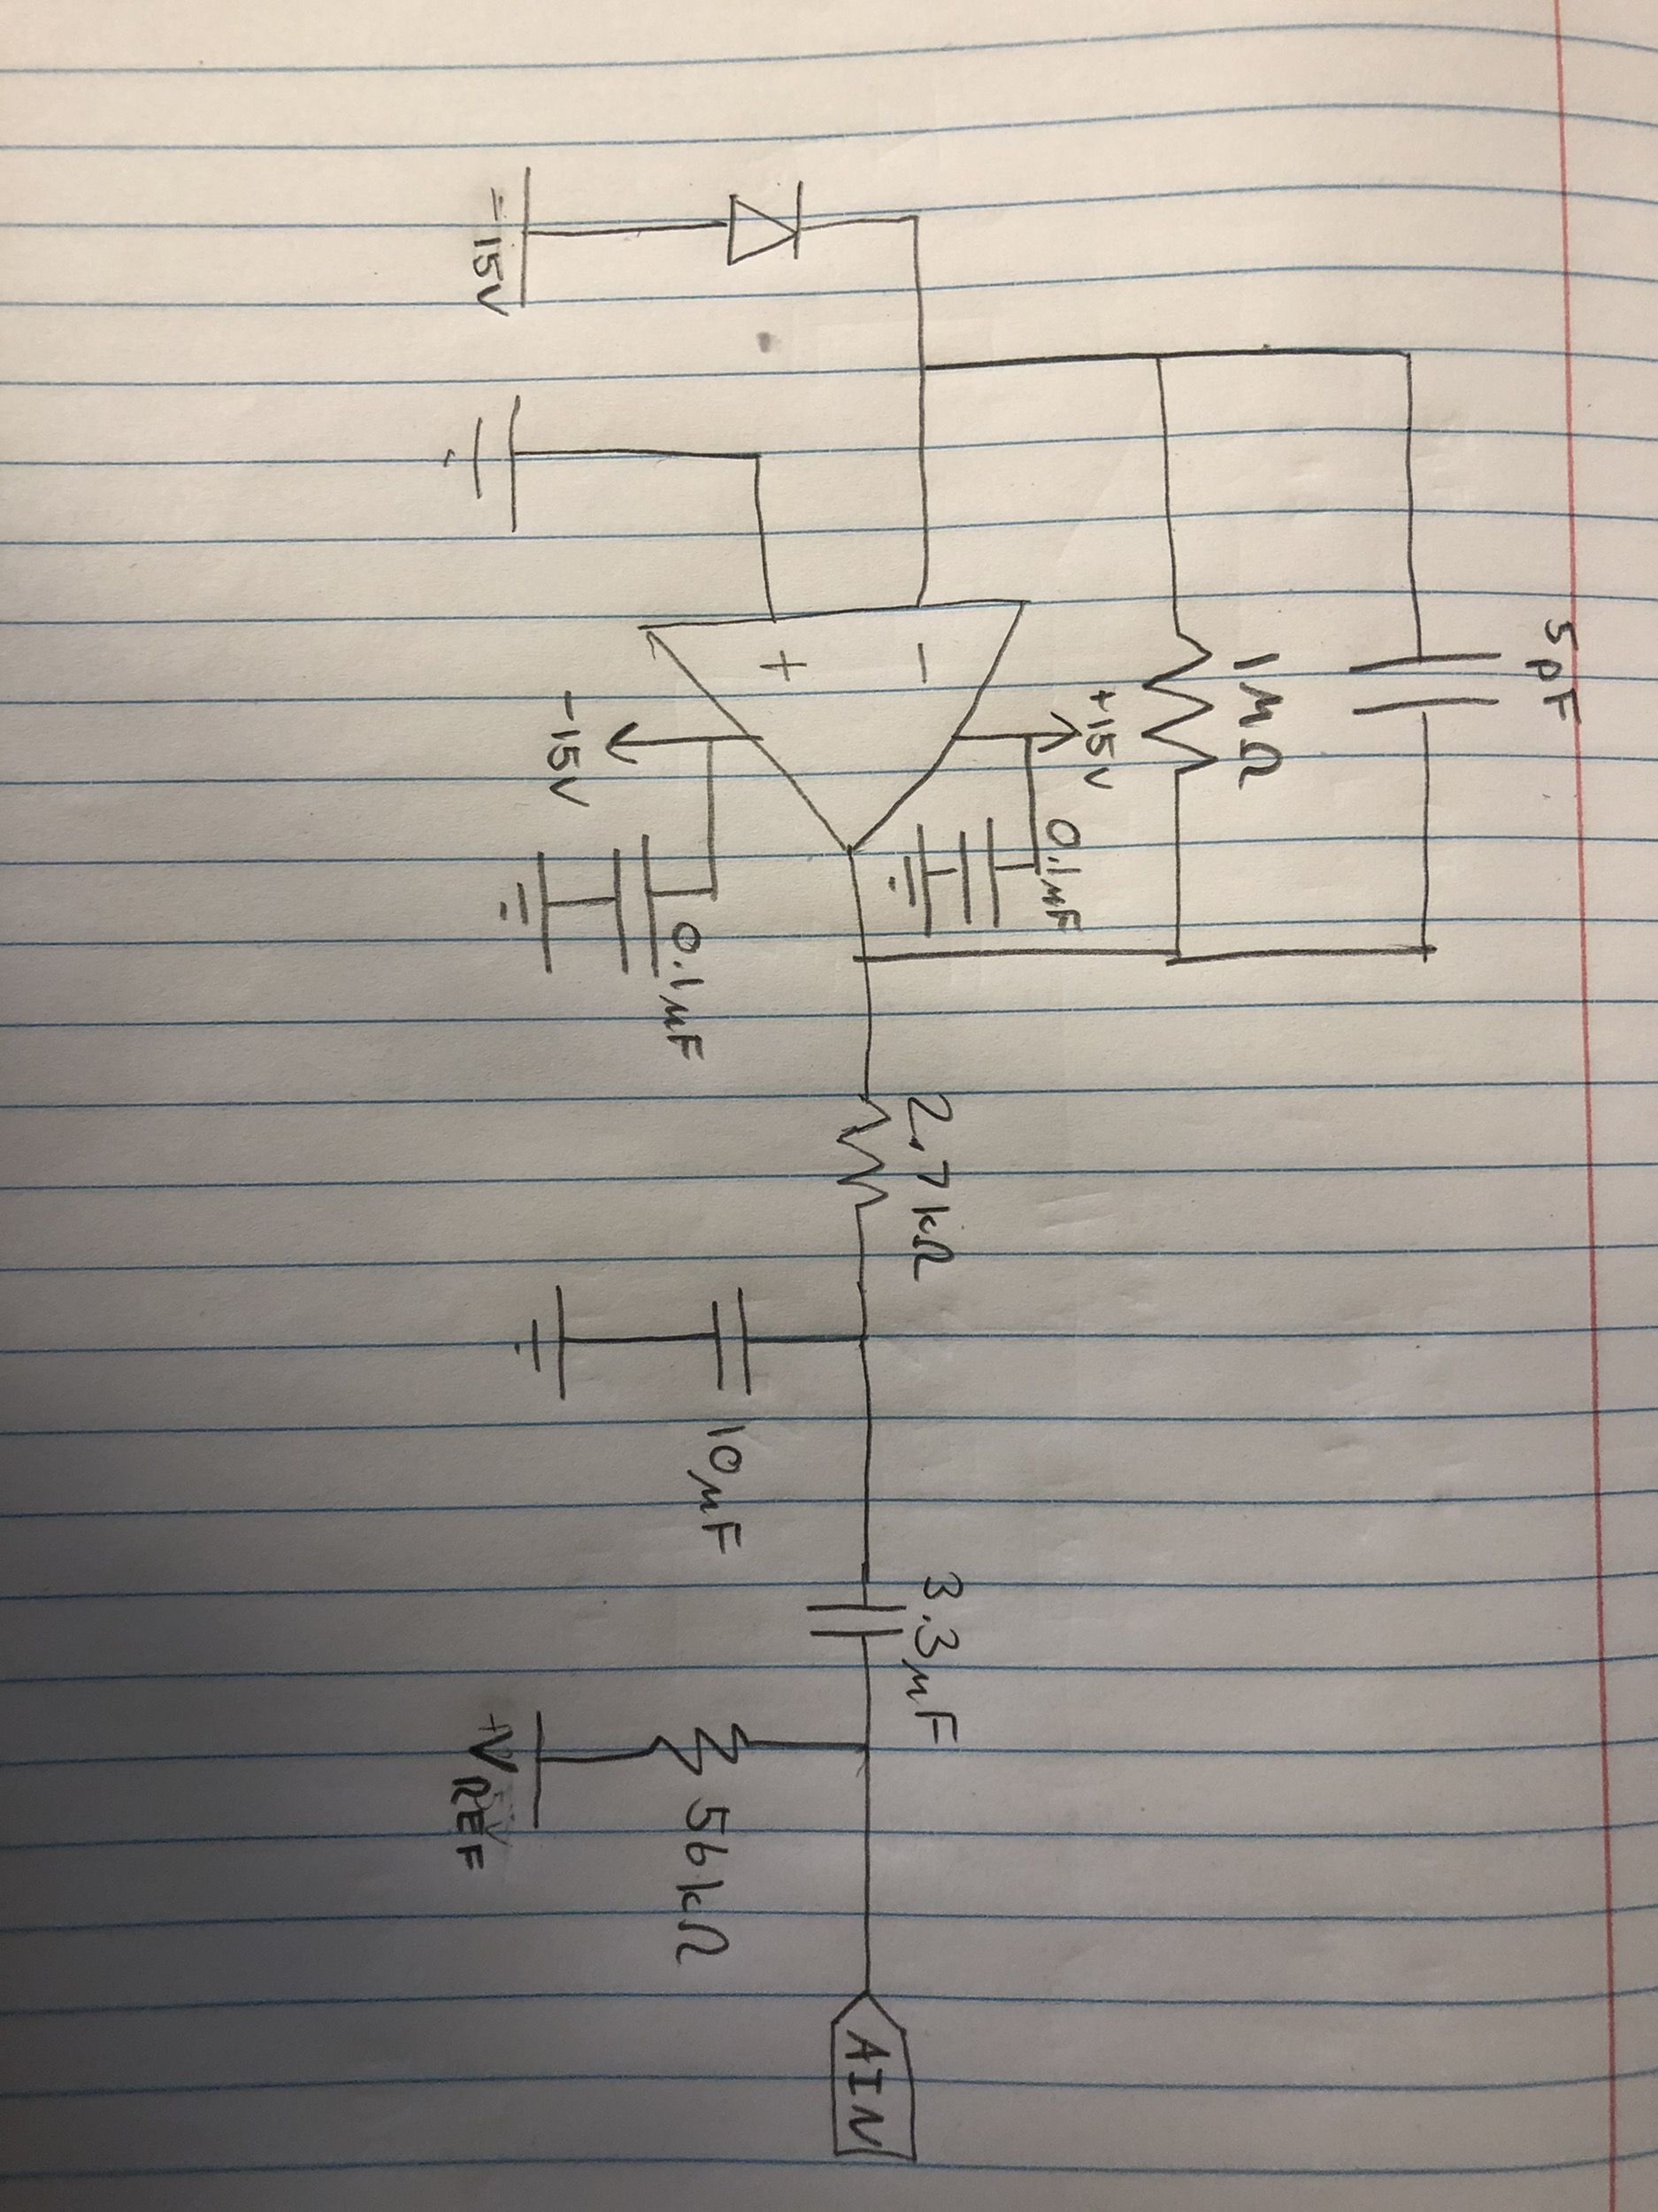 5pF
1MΩ
+15V
0.1μF
-
+
-15V
0.1μF
-15V
2.7kΩ
10μF
3.3μF
56kΩ
+VREF
AIN